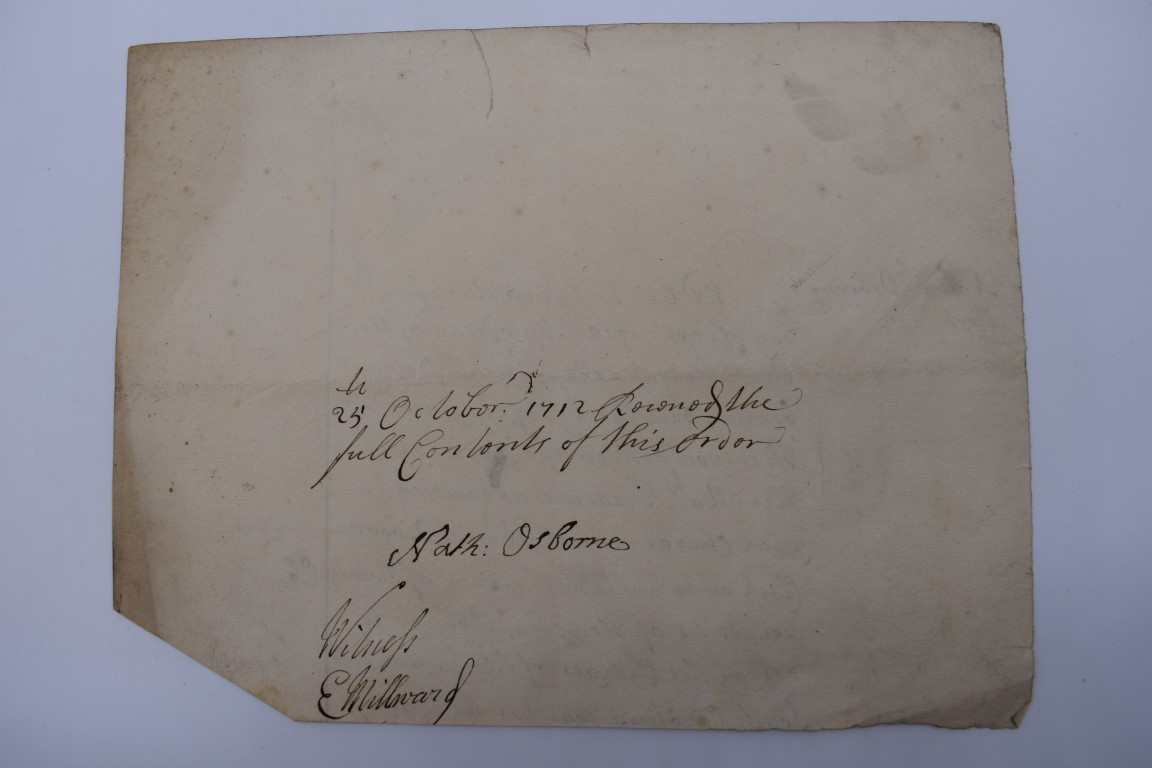 25th October 1712 Received the
full Contents of this Order
Nath: Osborne
Witness
E Millward